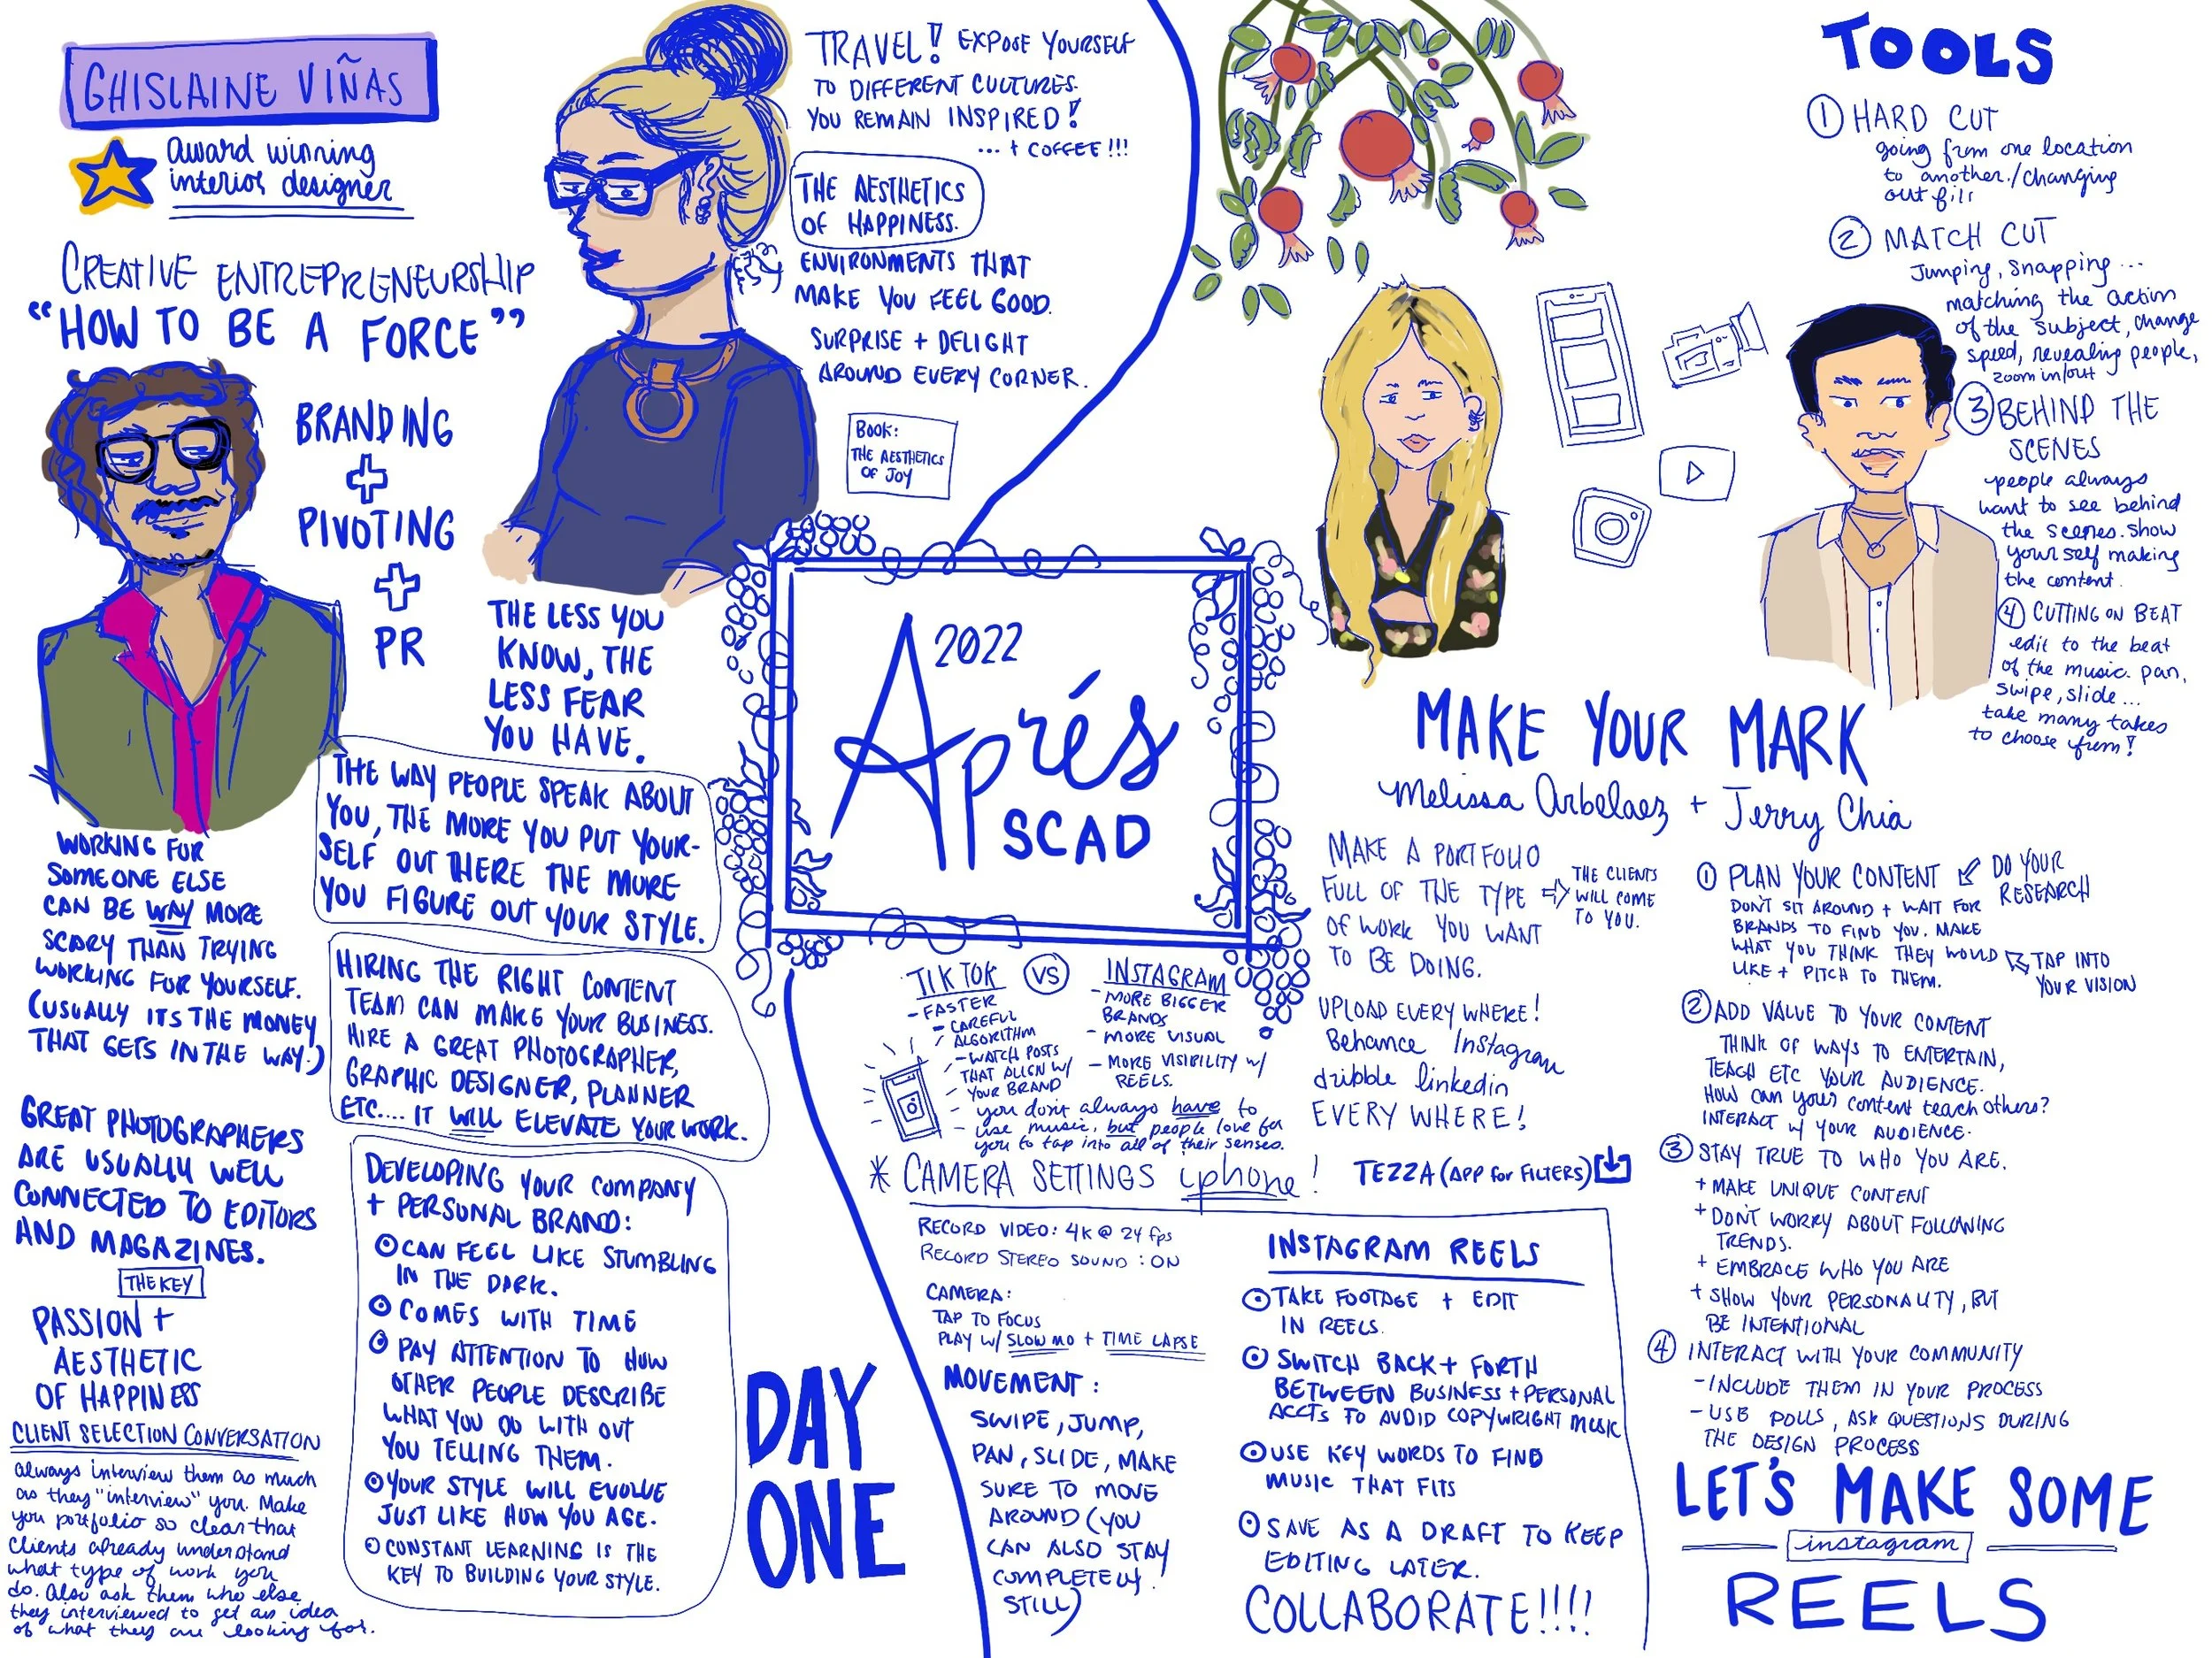 GHISLAINE VIÑAS
award winning
interior designer
CREATIVE ENTREPRENEURSHIP
“HOW TO BE A FORCE”
BRANDING
+
PIVOTING
+
PR
TRAVEL! EXPOSE YOURSELF
TO DIFFERENT CULTURES.
YOU REMAIN INSPIRED!
... + COFFEE!!!
THE AESTHETICS
OF HAPPINESS.
ENVIRONMENTS THAT
MAKE YOU FEEL GOOD.
SURPRISE + DELIGHT
AROUND EVERY CORNER.
Book:
THE AESTHETICS
OF JOY
THE LESS YOU
KNOW, THE
LESS FEAR
YOU HAVE.
THE WAY PEOPLE SPEAK ABOUT
YOU, THE MORE YOU PUT YOUR-
SELF OUT THERE THE MORE
YOU FIGURE OUT YOUR STYLE.
WORKING FOR
SOMEONE ELSE
CAN BE WAY MORE
SCARY THAN TRYING
WORKING FOR YOURSELF.
(USUALLY ITS THE MONEY
THAT GETS IN THE WAY.)
HIRING THE RIGHT CONTENT
TEAM CAN MAKE YOUR BUSINESS.
HIRE A GREAT PHOTOGRAPHER,
GRAPHIC DESIGNER, PLANNER
ETC.... IT WILL ELEVATE YOUR WORK.
GREAT PHOTOGRAPHERS
ARE USUALLY WELL
CONNECTED TO EDITORS
AND MAGAZINES.
THE KEY
PASSION +
AESTHETIC
OF HAPPINESS
CLIENT SELECTION CONVERSATION
always interview them as much
as they "interview" you. Make
you portfolio so clear that
clients already understand
what type of work you
do. Also ask them who else
they interviewed to get an idea
of what they are looking for.
DEVELOPING YOUR COMPANY
+ PERSONAL BRAND:
CAN FEEL LIKE STUMBLING
IN THE DARK.
COMES WITH TIME
PAY ATTENTION TO HOW
OTHER PEOPLE DESCRIBE
WHAT YOU DO WITH OUT
YOU TELLING THEM.
YOUR STYLE WILL EVOLVE
JUST LIKE HOW YOU AGE.
CONSTANT LEARNING IS THE
KEY TO BUILDING YOUR STYLE.
DAY
ONE
2022
Aprés
SCAD
TOOLS
1 HARD CUT
going from one location
to another./changing
out fits
2 MATCH CUT
Jumping, snapping...
matching the action
of the subject, change
speed, revealing people,
zoom in/out
3 BEHIND THE
SCENES
people always
want to see behind
the scenes. Show
yourself making
the content.
4 CUTTING ON BEAT
edit to the beat
of the music. pan,
swipe, slide...
take many takes
to choose from!
MAKE YOUR MARK
Melissa Arbelaez + Jerry Chia
MAKE A PORTFOLIO
FULL OF THE TYPE
OF WORK YOU WANT
TO BE DOING.
THE CLIENTS
WILL COME
TO YOU.
UPLOAD EVERYWHERE!
Behance Instagram
dribble linkedin
EVERYWHERE!
TEZZA (APP for FILTERS)
TIKTOK VS INSTAGRAM
- FASTER
- CAREFUL
ALGORITHM
- WATCH POSTS
THAT ALIGN W/
YOUR BRAND
- MORE BIGGER
BRANDS
- MORE VISUAL
- MORE VISIBILITY W/
REELS.
- you don't always have to
use music, but people love for
you to tap into all of their senses.
* CAMERA SETTINGS iphone!
RECORD VIDEO: 4K @ 24 fps
RECORD STEREO SOUND: ON
CAMERA:
TAP TO FOCUS
PLAY W/ SLOW MO + TIME LAPSE
MOVEMENT:
SWIPE, JUMP,
PAN, SLIDE, MAKE
SURE TO MOVE
AROUND (YOU
CAN ALSO STAY
COMPLETELY
STILL)
INSTAGRAM REELS
TAKE FOOTAGE + EDIT
IN REELS.
SWITCH BACK + FORTH
BETWEEN BUSINESS + PERSONAL
ACCTS TO AVOID COPYWRIGHT MUSIC
USE KEY WORDS TO FIND
MUSIC THAT FITS
SAVE AS A DRAFT TO KEEP
EDITING LATER.
COLLABORATE!!!!
1 PLAN YOUR CONTENT
DO YOUR
RESEARCH
DON'T SIT AROUND + WAIT FOR
BRANDS TO FIND YOU. MAKE
WHAT YOU THINK THEY WOULD
LIKE + PITCH TO THEM.
TAP INTO
YOUR VISION
2 ADD VALUE TO YOUR CONTENT
THINK OF WAYS TO ENTERTAIN,
TEACH ETC YOUR AUDIENCE.
HOW CAN your content teach others?
INTERACT W/ YOUR AUDIENCE.
3 STAY TRUE TO WHO YOU ARE.
+ MAKE UNIQUE CONTENT
+ DON'T WORRY ABOUT FOLLOWING
TRENDS.
+ EMBRACE WHO YOU ARE
+ SHOW YOUR PERSONALITY, BUT
BE INTENTIONAL
4 INTERACT WITH YOUR COMMUNITY
- INCLUDE THEM IN YOUR PROCESS
- USE POLLS, ASK QUESTIONS DURING
THE DESIGN PROCESS
LET'S MAKE SOME
instagram
REELS